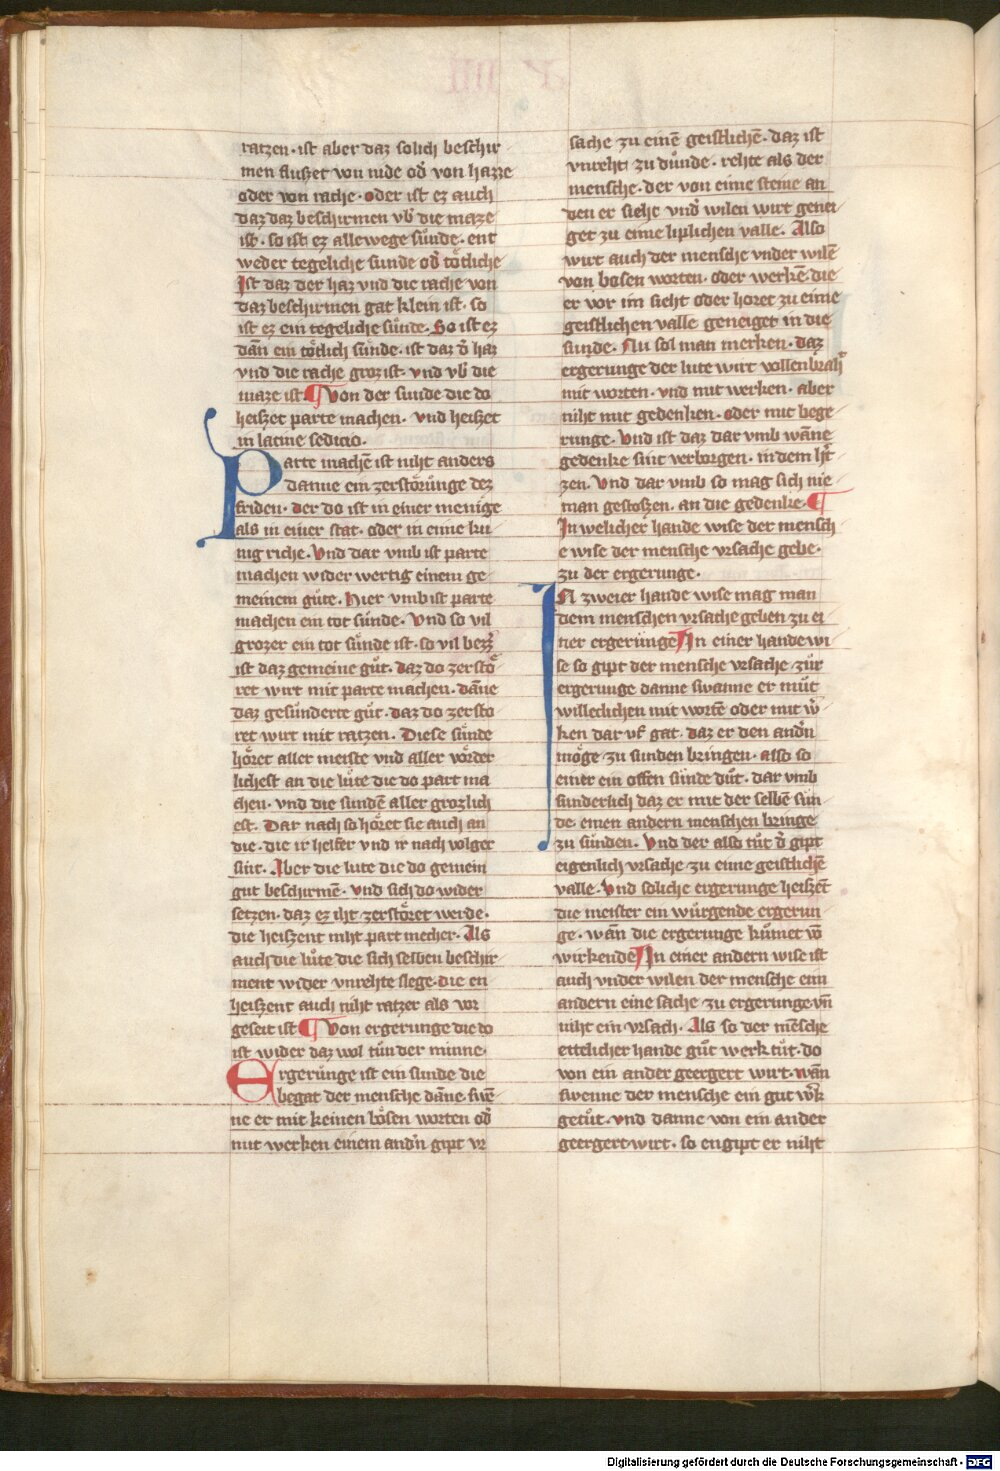 ratzen · ist aber daz solich beschir
men flußet von nide od̕ von hazze
oder von rache · oder ist ez auch
daz daz beschirmen vb̕ die maze
ist · so ist ez allewege sünde · ent
weder tegeliche sunde od̕ tötliche
Ist daz der haz vnd die rache von
daz beschirmen gat klein ist · so
ist ez ein tegeliche sünde · So ist ez
dān ein tötlich sünde · ist daz d̕ haz
vnd die rache groz ist · vnd vb̕ die
maze ist · ¶ Von der sunde die do
heiszet parte machen · vnd heiszet
in latine sedicio ·
Parte machē ist niht anders
danne ein zerstörünge dez
friden · der do ist in einer menige
als in einer stat · oder in eime ku
nig riche · Vnd dar vmb ist parte
machen wider wertig einem ge
meinem güte · Hier vmb ist parte
machen ein tot sünde · Vnd so vil
grozer ein tot sünde ist · so vil bezz̕
ist daz gemeine gůt · daz do zerstö
ret wirt mit parte machen · dāne
daz gesünderte gůt · daz do zersto
ret wirt mit ratzen · Diese sünde
höret aller meiste vnd aller vörder
lichest an die lüte die do part ma
chen · vnd die sundē aller grozlich
est · Dar nach so höret sie auch an
die · die ir helfer vnd ir nach volger
sint · Aber die lute die do gemein
gut beschirmē · vnd sich do wider
setzen · daz ez iht zerstöret werde ·
die heiszent niht part mecher · Als
auch die lüte die sich selben beschir
ment wider vnrehte slege · die en
heiszent auch niht ratzer als vor
geseit ist ¶ Von ergerunge die do
ist wider daz wol tün der minne ·
Ergerünge ist ein sunde die
begat der mensche dāne swē
ne er mit keinen bösen worten od̕
mit werken einem and̕n gipt vr
sache zu einē geistlichē · daz ist
vnreht zu dünde · rehte als der
mensche · der von eime steine an
den er siehe vnd̕ wilen wirt genei
get zu eime liplichen valle · Also
wirt auch der mensche vnder wilē
von bosen worten · oder werkē · die
er vor im sieht oder höret zu eime
geistlichen valle geneiget in die
sunde · Nu sol man merken · daz
ergerunge der lute wirt vollenbraht
mit worten · vnd mit werken · aber
niht mit gedenken · oder mit bege
runge · Vnd ist daz dar vmb wāne
gedenke sint verborgen · in dem h̕t
zen · Vnd dar vmb so mag sich nie
man gestoszen · an die gedenke · ¶
In welicher hande wise der mensch
e wise der mensche vrsache gebe ·
zu der ergerunge ·
IN zweier hande wise mag man
dem menschen vrsache geben zu ei
ner ergerünge In einer hande wi
se so gipt der mensche vrsache zůr
ergerunge danne swanne er můt
williclichen mit wortē oder mit w̕
ken dar vf gat · daz er den and̕n
möge zu sunden bringen · also so
einer ein offen sünde důt · dar vmb
sunderlich daz er mit der selbē sün
de einen andern menschen bringe
zu sünden · Vnd der also tůt d̕ gipt
eigenlich vrsache zu eime geistlichē
valle · Vnd soliche ergerunge heiszēt
die meister ein würgende ergerun
ge · wān die ergerunge kůmet vō
wirkende In einer andern wise ist
auch vnder wilen der mensche eim
andern eine sache zu ergerunge vn̄
niht ein vrsach · Als so der mēsche
ettelicher hande gůt werk tůt · do
von ein ander geergert wirt · wān
swenne der mensche ein gut w̕k
getůt · vnd danne von ein ander
geergert wirt · so engipt er niht
Digitalisierung gefördert durch die Deutsche Forschungsgemeinschaft - DFG